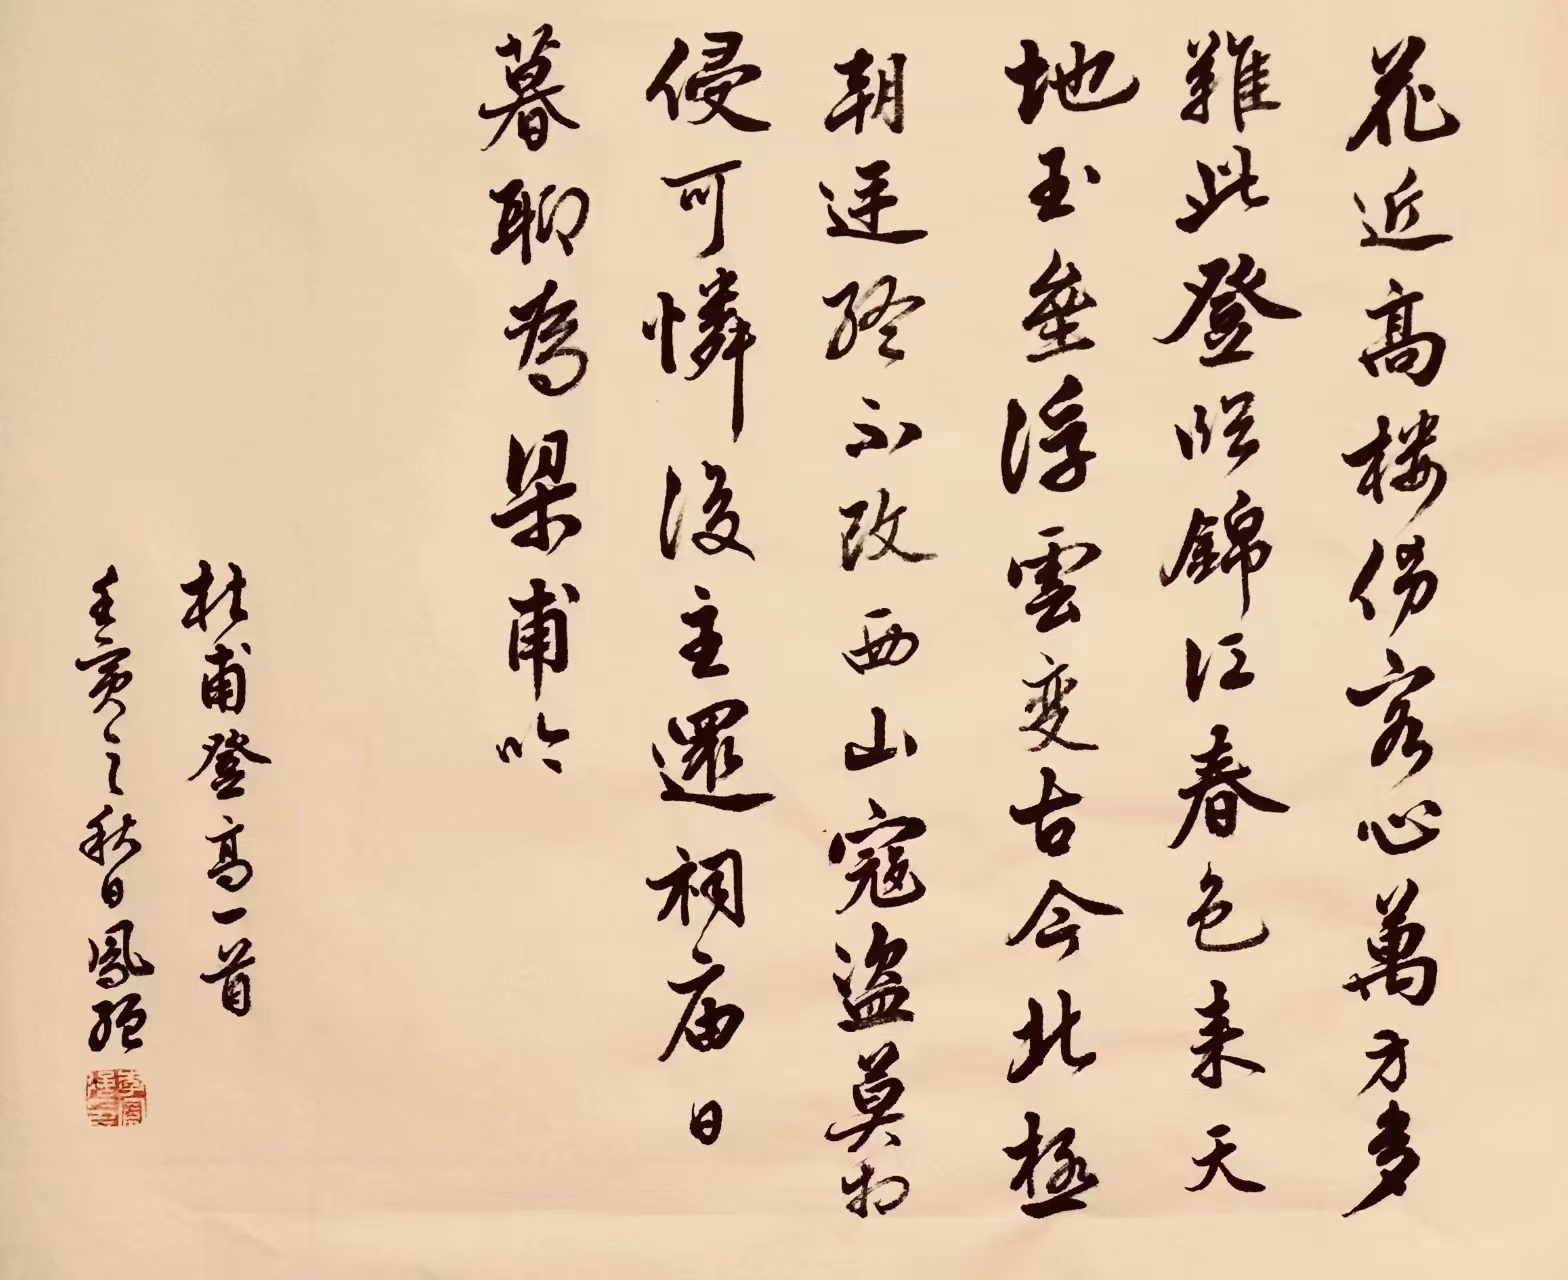 花近高楼傷客心萬方多
難此登临錦江春色来天
地玉壘浮雲变古今北極
朝廷終不改西山寇盗莫相
侵可憐後主還祠庙日
暮聊為梁甫吟
杜甫登高一首
壬寅之秋日鳳强